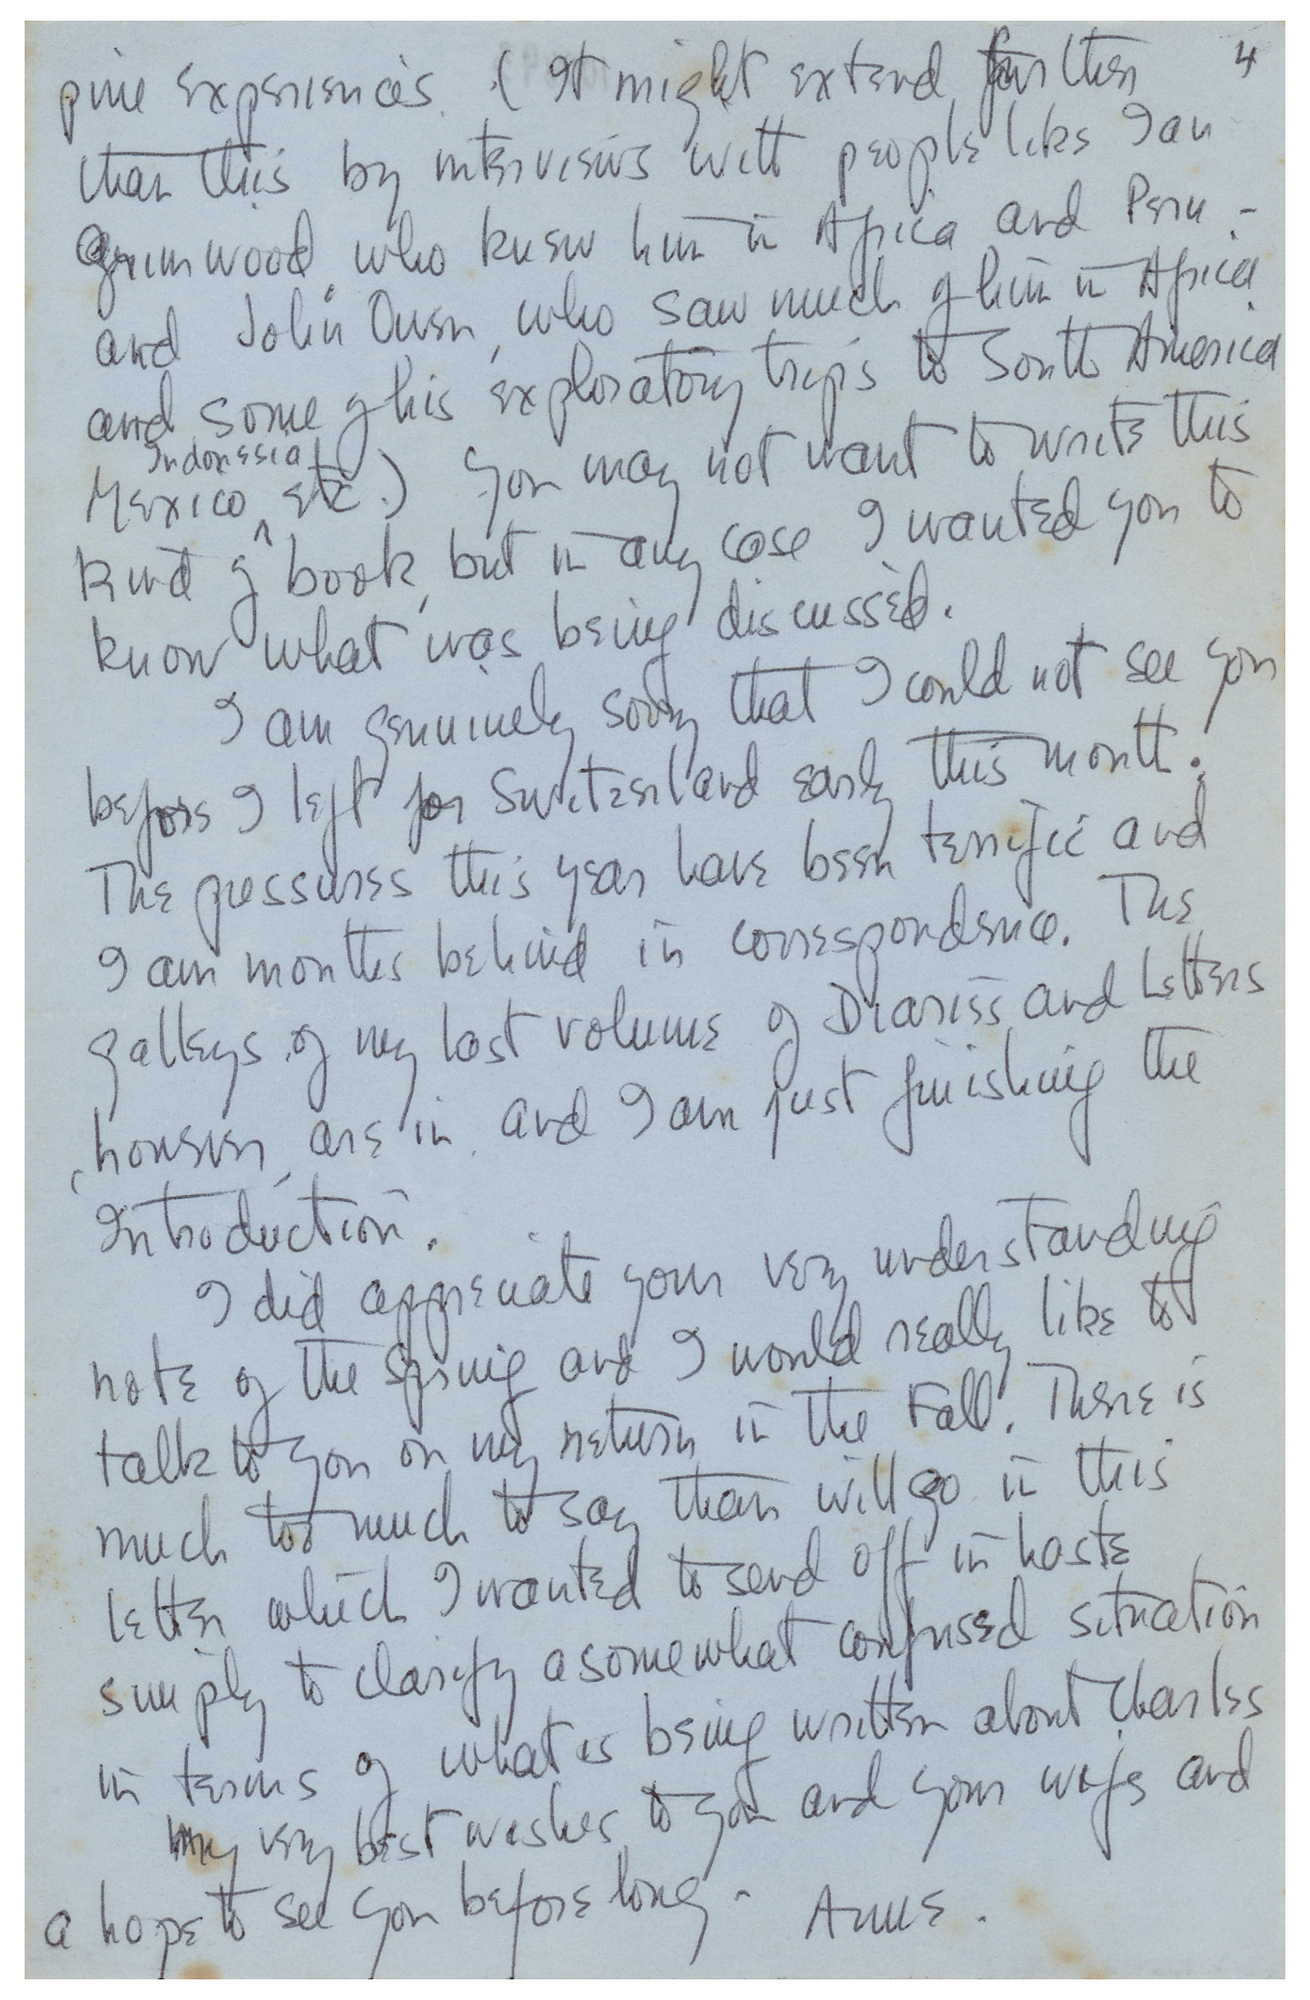 4
pine experiences. (It might extend further
than this by interviews with people like Ian
Grimwood, who knew him in Africa and Peru -
and John Owen, who saw much of him in Africa
and some of his exploratory trips to South America
Indonesia
Mexico ^ etc.) You may not want to write this
kind of book, but in any case I wanted you to
know what was being discussed.
I am genuinely sorry that I could not see you
before I left for Switzerland early this month.
The pressures this year have been terrific and
I am months behind in correspondence. The
galleys of my last volume of Diaries and Letters
, however, are in and I am just finishing the
Introduction.
I did appreciate your very understanding
note of the Spring and I would really like to
talk to you on my return in the Fall. There is
much too much to say than will go in this
letter which I wanted to send off in haste
simply to clarify a somewhat confused situation
in terms of what is being written about Charles
My very best wishes to you and your wife and
a hope to see you before long - Anne.